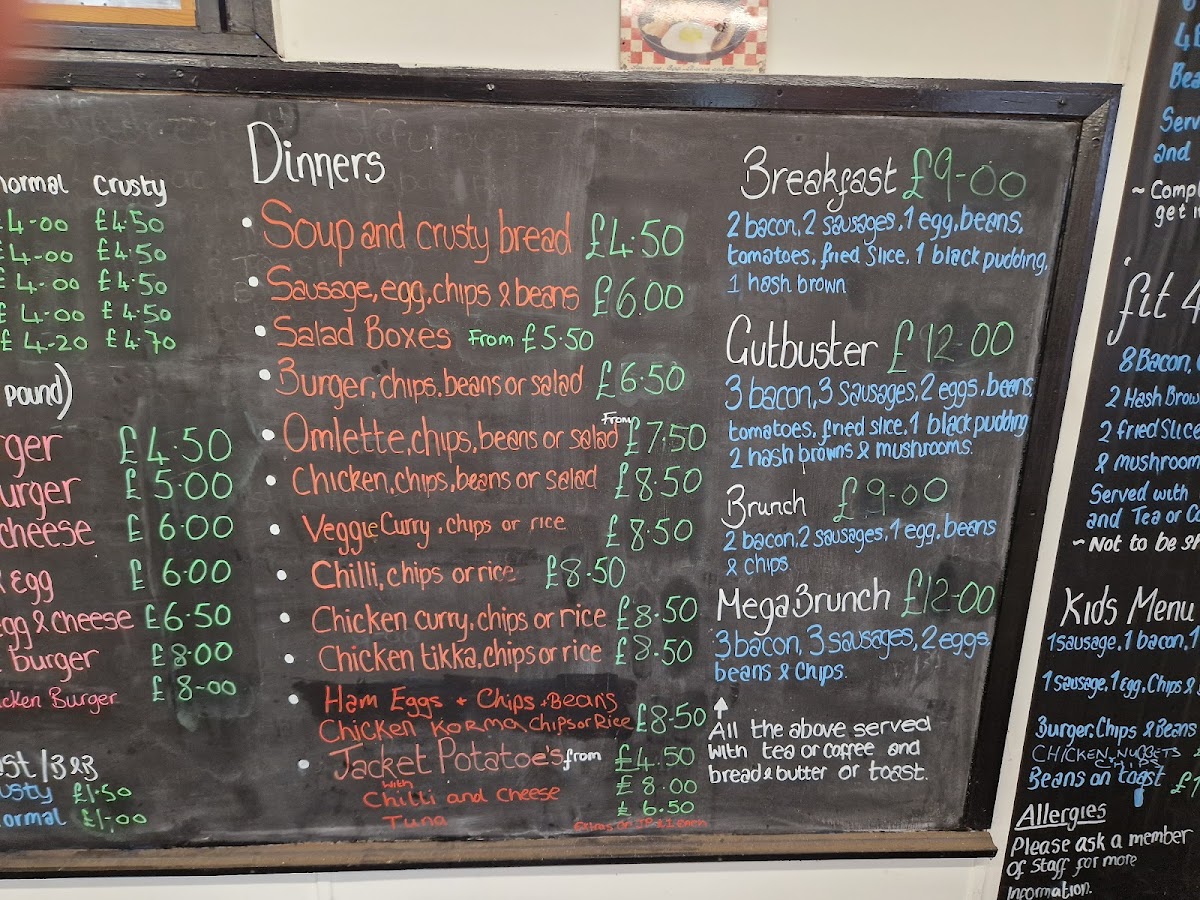 normal crusty
£4-00 £4.50
£4-00 £4.50
£4-00 £4.50
£4-00 £4.50
£4-20 £4.70
pound)
rger £4.50
urger £5.00
cheese £6.00
Egg £6.00
Egg & cheese £6.50
burger £8.00
icken Burger £8-00
ast / B&B
usty £1.50
normal £1.00
Dinners
• Soup and crusty bread £4.50
• Sausage, egg, chips & beans £6.00
• Salad Boxes From £5.50
• Burger, chips, beans or salad £6.50
• Omlette, chips, beans or salad From £7.50
• Chicken, chips, beans or salad £8.50
• Veggie Curry, chips or rice £8.50
• Chilli, chips or rice £8.50
• Chicken curry, chips or rice £8.50
• Chicken tikka, chips or rice £8.50
• Ham Eggs + Chips + Beans
Chicken Korma chips or Rice £8.50
• Jacket Potatoe's from £4.50
with
Chilli and Cheese £8.00
Tuna £6.50
Breakfast £9-00
2 bacon, 2 sausages, 1 egg, beans,
tomatoes, fried slice, 1 black pudding,
1 hash brown
Gutbuster £12-00
3 bacon, 3 sausages, 2 eggs, beans,
tomatoes, fried slice, 1 black pudding
2 hash browns & mushrooms.
Brunch £9-00
2 bacon, 2 sausages, 1 egg, beans
& chips
Mega Brunch £12-00
3 bacon, 3 sausages, 2 eggs,
beans & chips.
All the above served
with tea or coffee and
bread & butter or toast.
Bea
Serv
and
~ Compl
get
fit 4
8 Bacon,
2 Hash Brow
2 fried Slice
& mushroom
Served with
and Tea or Co
~ Not to be sh
Kids Menu
1 sausage, 1 bacon, 1
1 sausage, 1 Egg, Chips &
Burger, Chips & Beans
CHICKEN NUGGETS
CHIPS
Beans on toast
Allergies
Please ask a member
of staff for more
information.